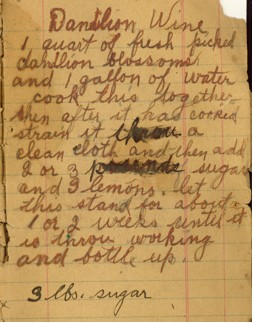 Dandlion Wine
1 quart of fresh picked
dandlion blossoms
and 1 gallon of water
cook this together
then after it has cooked
strain it throu a
clean cloth and then add
2 or 3 sugar
and 3 lemons. let
this stand for about
1 or 2 weeks until it
is throu working
and bottle up.
3 lbs. sugar